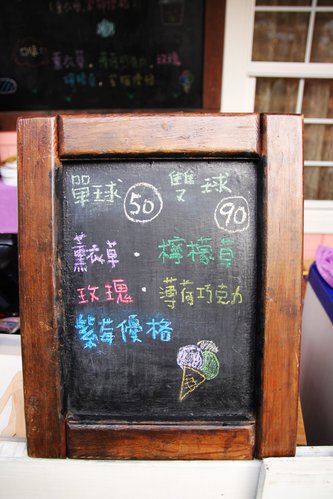 單球 50 雙球 90
薰衣草 · 檸檬草
玫瑰 · 薄荷巧克力
紫莓優格